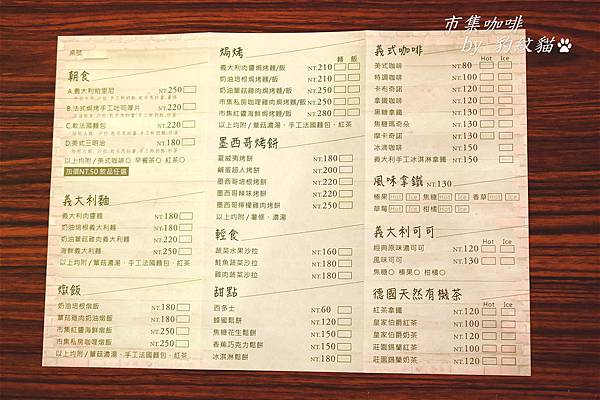 市集咖啡
by 豹紋貓
桌號
朝食
A.義大利帕里尼 NT.250
B.法式焗烤手工吐司厚片 NT.220
C.軟法國麵包 NT.220
D.美式三明治 NT.180
以上均附/美式咖啡 早餐茶 紅茶
加價NT.50 飲品任選
義大利麵
義大利肉醬麵 NT.180
奶油培根義大利麵 NT.180
奶油蕈菇雞肉義大利麵 NT.220
海鮮義大利麵 NT.250
以上均附/蕈菇濃湯、手工法國麵包、紅茶
燉飯
奶油培根燉飯 NT.180
蕈菇雞肉奶油燉飯 NT.180
市集紅醬海鮮燉飯 NT.250
市集私房咖哩燉飯 NT.250
以上均附/蕈菇濃湯、手工法國麵包、紅茶
焗烤
麵 飯
義大利肉醬焗烤麵/飯 NT.210
奶油培根焗烤麵/飯 NT.210
奶油蕈菇雞肉焗烤麵/飯 NT.250
市集私房咖哩雞肉焗烤麵/飯 NT.250
市集紅醬海鮮焗烤麵/飯 NT.280
以上均附/蕈菇濃湯、手工法國麵包、紅茶
墨西哥烤餅
夏威夷烤餅 NT.180
鹹蛋超人烤餅 NT.200
墨西哥培根烤餅 NT.220
墨西哥辣味烤餅 NT.220
墨西哥檸檬雞肉烤餅 NT.250
以上均附/薯條、濃湯
輕食
蔬菜水果沙拉 NT.160
鮭魚蔬菜沙拉 NT.180
雞肉蔬菜沙拉 NT.180
甜點
西多士 NT.60
蜂蜜鬆餅 NT.120
焦糖花生鬆餅 NT.150
香蕉巧克力鬆餅 NT.150
冰淇淋鬆餅 NT.180
義式咖啡
Hot Ice
美式咖啡 NT.80
特調咖啡 NT.100
卡布奇諾 NT.120
拿鐵咖啡 NT.120
黑糖拿鐵 NT.130
焦糖瑪奇朵 NT.130
摩卡奇諾 NT.130
冰滴咖啡 NT.150
義大利手工冰淇淋拿鐵 NT.150
風味拿鐵 NT.130
榛果 Hot Ice 焦糖 Hot Ice 香草 Hot Ice
草莓 Hot Ice 柑橘 Hot Ice
義大利可可
Hot Ice
經典原味濃可可 NT.120
風味可可 NT.130
焦糖 榛果 柑橘
德國天然有機茶
Hot Ice
紅茶拿鐵 NT.120
皇家伯爵紅茶 NT.100
皇家伯爵奶茶 NT.120
莊園錫蘭紅茶 NT.100
莊園錫蘭奶茶 NT.120